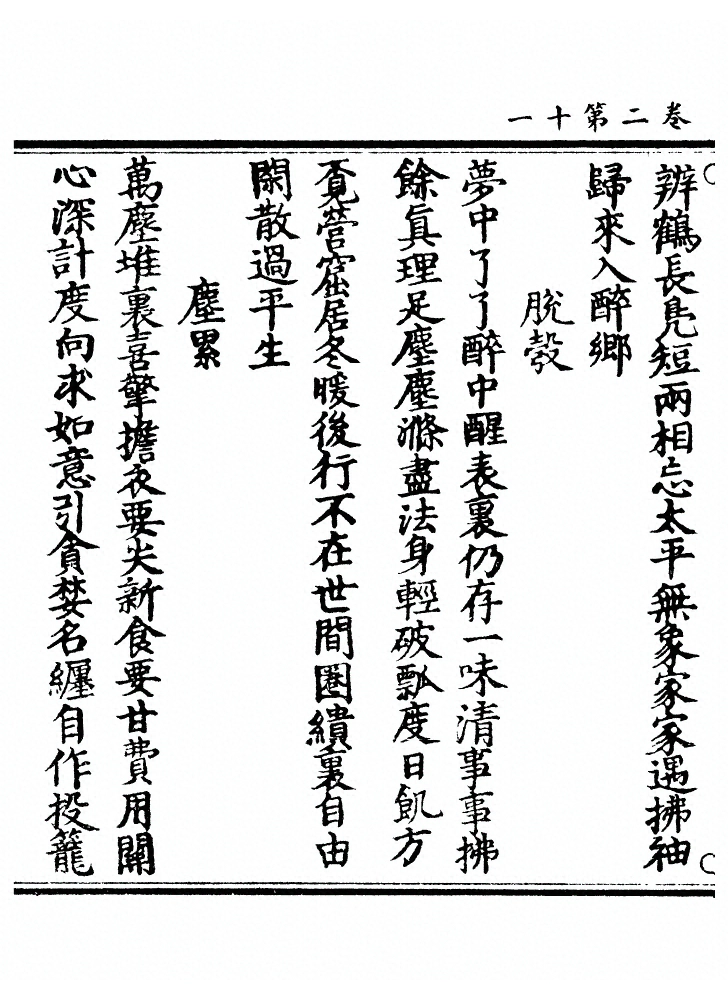 卷二第十一
辨鶴長鳧短兩相忘太平無象家家遇拂袖
歸來入醉鄉
脫殼
夢中了了醉中醒表裏仍存一味清事事拂
餘眞理足塵塵滌盡法身輕破瓢度日飢方
覔營窟居冬暖後行不在世間圈繢裏自由
閑散過平生
塵累
萬塵堆裏喜擎擔衣要尖新食要甘費用關
心深計度向求如意引貪婪名纏自作投籠